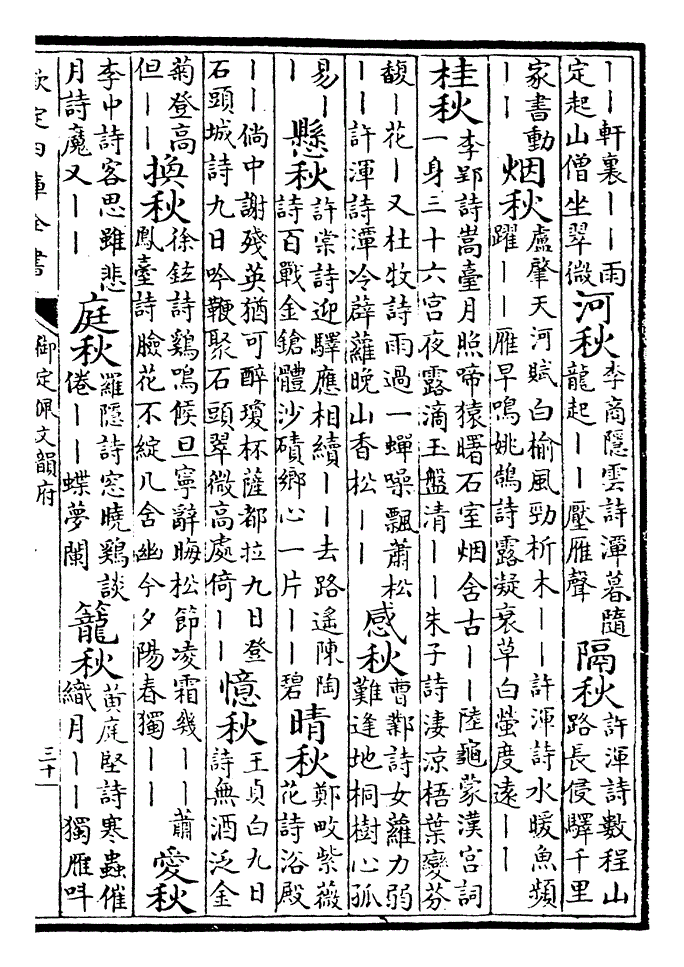 ｜｜軒裏｜｜雨
定起山僧坐翠微
河秋
李商隱雲詩潭暮隨
龍起｜｜壓雁聲
隔秋
許渾詩數程山
路長侵驛千里
家書動
｜｜
烟秋
盧肇天河賦白榆風勁析木｜｜許渾詩水暖魚頻
躍｜｜雁早鳴姚鵠詩露凝衰草白螢度遠｜｜
桂秋
李郢詩嵩臺月照啼猿曙石室烟含古｜｜陸龜蒙漢宮詞
一身三十六宮夜露滴玉盤清｜｜朱子詩淒涼梧葉變芬
馥｜花｜又杜牧詩雨過一蟬噪飄蕭松
｜｜許渾詩潭冷薜蘿晚山香松｜｜
感秋
曹鄴詩女蘿力弱
難逢地桐樹心孤
易｜
｜
懸秋
許棠詩迎驛應相續｜｜去路遙陳陶
詩百戰金鎗體沙磧鄉心一片｜｜碧
晴秋
鄭畋紫薇
花詩浴殿
｜｜倘中謝殘英猶可醉瓊杯薩都拉九日登
石頭城詩九日吟鞭聚石頭翠微高處倚｜｜
憶秋
王貞白九日
詩無酒泛金
菊登高
但｜｜
換秋
徐鉉詩鷄鳴候旦寧辭晦松節凌霜幾｜｜蕭
鳳臺詩臉花不綻几含幽今夕陽春獨｜｜
愛秋
李中詩客思雖悲
月詩魔又｜｜
庭秋
羅隱詩窓曉鷄談
倦｜｜蝶夢闌
籠秋
黃庭堅詩寒蟲催
織月｜｜獨雁呌
欽定四庫全書
御定佩文韻府
三十